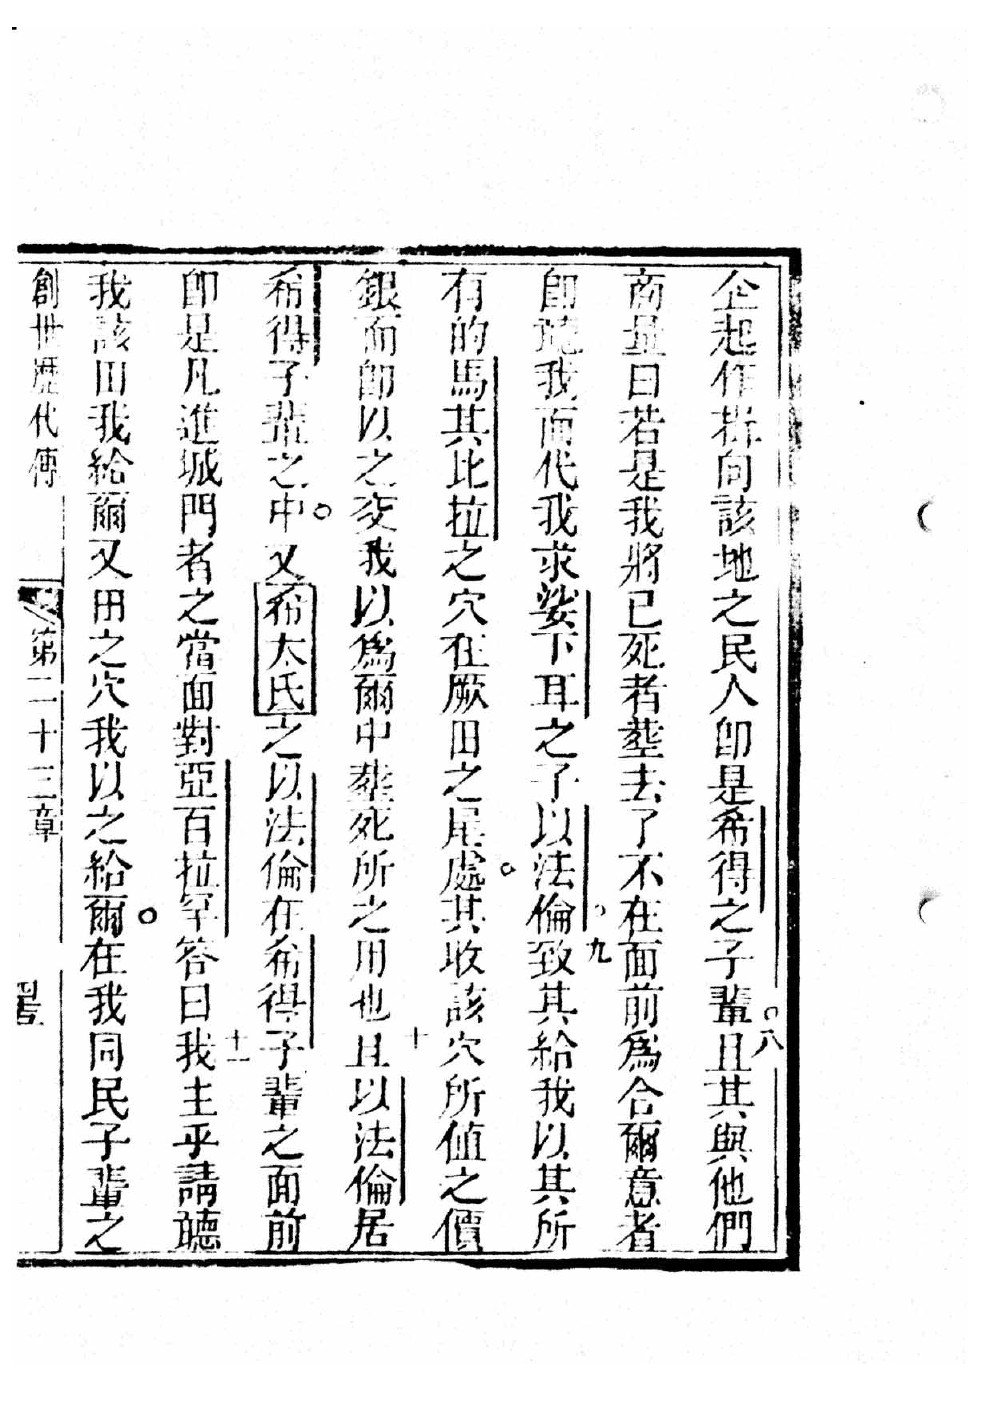 企起作揖向該地之民人卽是希得之子輩○八且其與他們
商量曰若是我將已死者葬去了不在面前爲合爾意者
卽聽我而代我求娑下耳之子以法倫○九致其給我以其所
有的馬其比拉之穴在厥田之尾處○其收該穴所値之價
銀而卽以之交我以爲爾中葬死所之用也十且以法倫居
希得子輩之中○又希太氏之以法倫在希得子輩之面前
卽是凡進城門者之當面對亞百拉罕答曰十一我主乎請聽
我該田我給爾又田之穴我以之給爾○在我同民子輩之
創世歷代傳 第二十三章